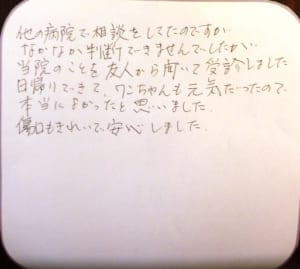 他の病院で相談をしてたのですが
なかなか判断できませんでしたが
当院のことを友人から聞いて受診しました
日帰りできて、ワンちゃんも元気だったので
本当によかったと思いました.
傷口もきれいで安心しました.